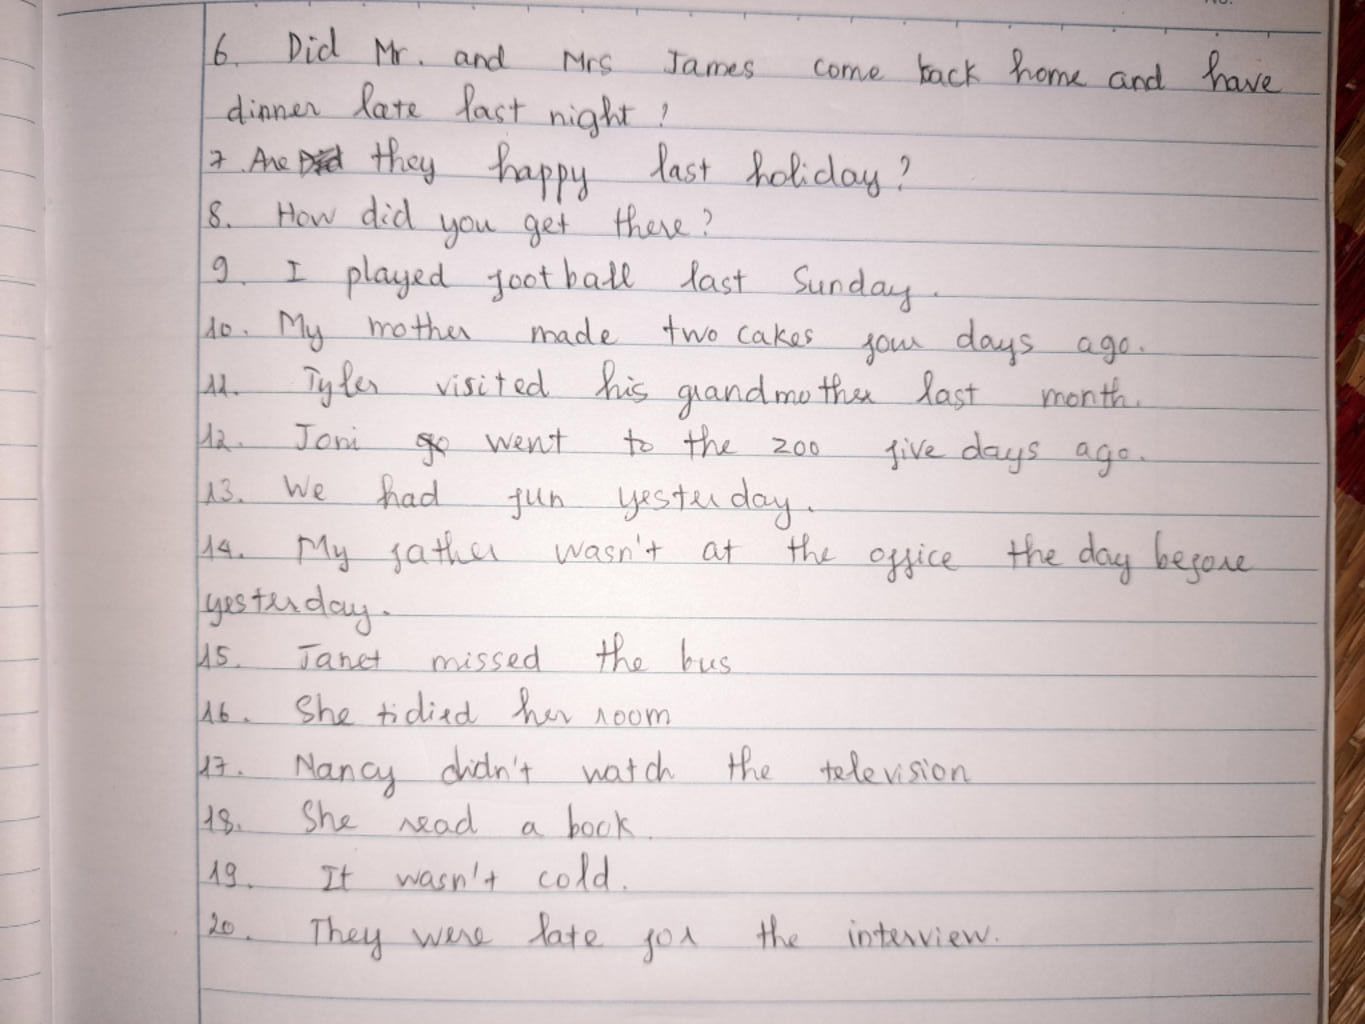 6. Did Mr. and Mrs James come back home and have
dinner late last night ?
7. Are they happy last holiday?
8. How did you get there?
9. I played football last Sunday.
10. My mother made two cakes four days ago.
11. Tyler visited his grandmother last month.
12. Joni went to the zoo five days ago.
13. We had fun yesterday.
14. My father wasn't at the office the day before
yesterday.
15. Janet missed the bus
16. She tidied her room
17. Nancy didn't watch the television
18. She read a book.
19. It wasn't cold.
20. They were late for the interview.